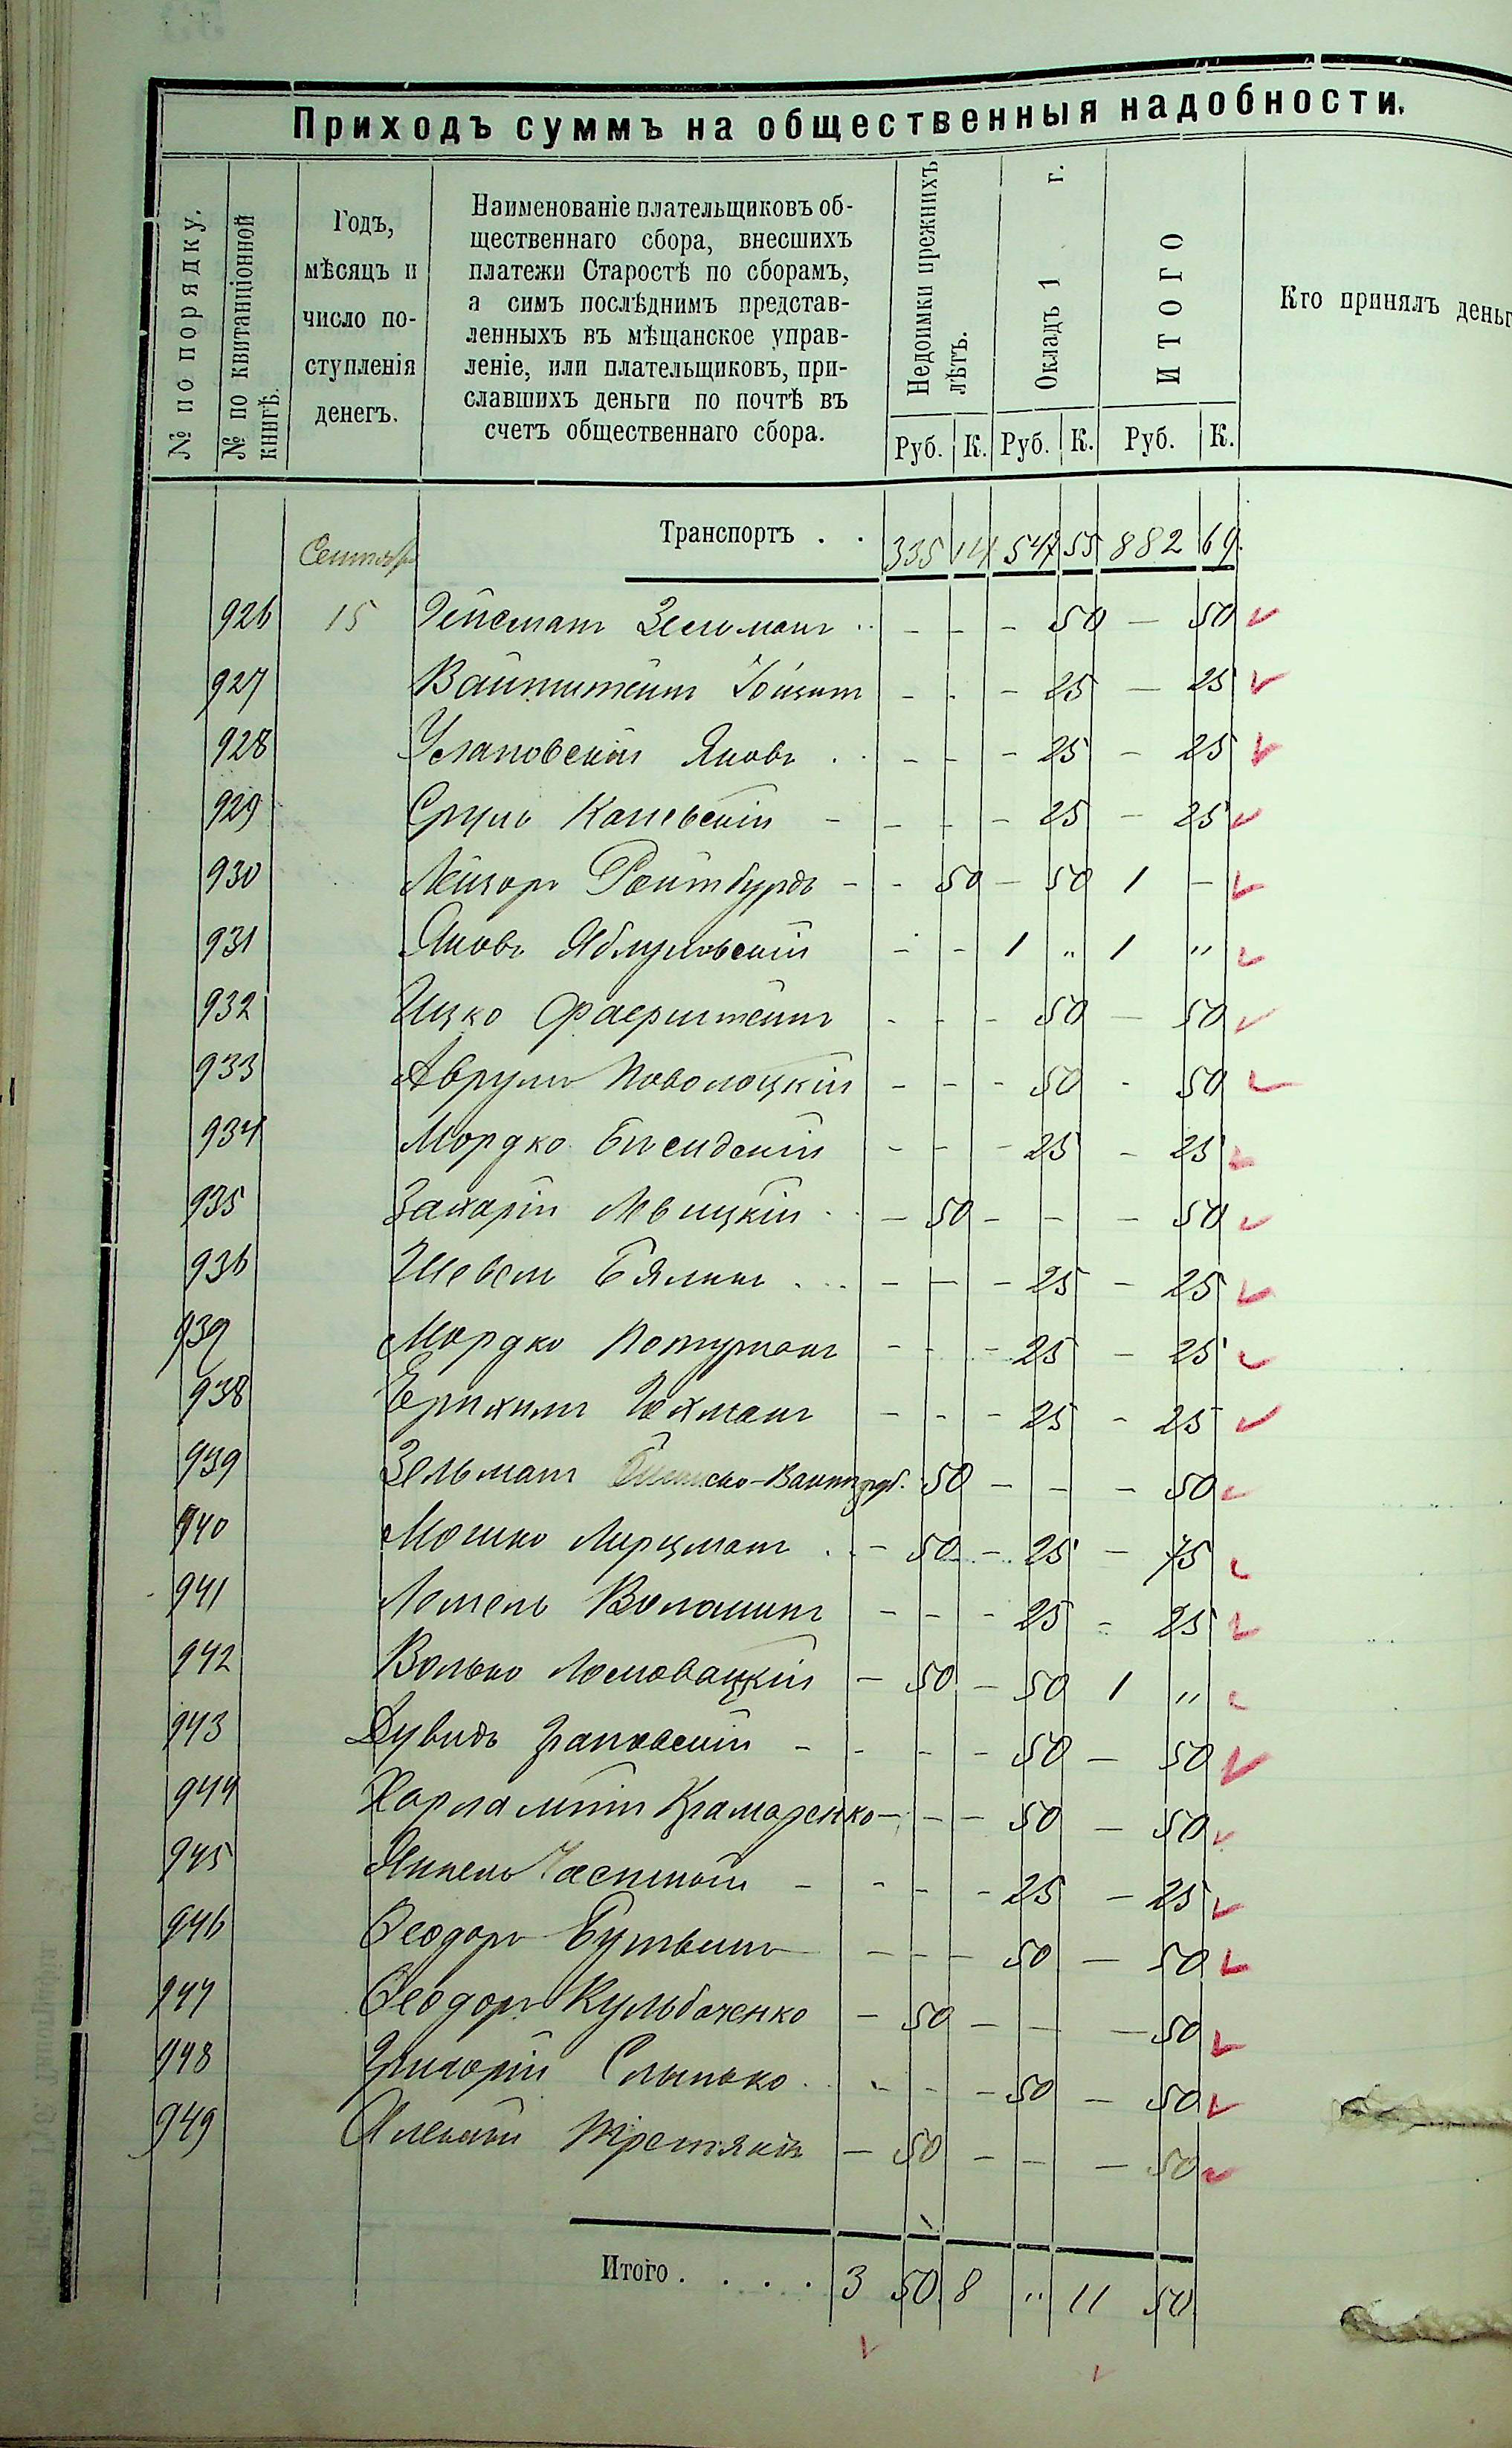 Приходъ суммъ на общественныя надобности.
№ по порядку.
№ по квитанціонной книгѣ.
Годъ,
мѣсяцъ и
число по-
ступленія
денегъ.
Наименованіе плательщиковъ об-
щественнаго сбора, внесшихъ
платежи Старостѣ по сборамъ,
а симъ послѣднимъ представ-
ленныхъ въ мѣщанское управ-
леніе, или плательщиковъ, при-
славшихъ деньги по почтѣ въ
счетъ общественнаго сбора.
Недоимки прежнихъ
лѣтъ.
Окладъ 1 г.
ИТОГО
Кто принялъ деньг
Руб. К. Руб. К. Руб. К.
Транспортъ . . 335 14 547 55 882 69
Сентябр
926 15 Зельман - - - 50 - 50
927 Вайнштейн - - - 25 - 25
928 Яковъ - - - 25 - 25
929 Сруль Каневскій - - - 25 - 25
930 Лейзоръ Ройтбурдъ - 50 - 50 1 -
931 Яковъ Яблуновскій - - 1 " 1 "
932 Ицко Фаерштейнъ - - - 50 - 50
933 Аврумъ Поволоцкій - - - 50 - 50
934 Мордко - - - 25 - 25
935 Захарій Левицкій - 50 - - - 50
936 Шевель Бялик - - - 25 - 25
939 Мордко - - - 25 - 25
938 Гохманъ - - - 25 - 25
939 Зельманъ 50 - - - 50
940 Мошко Лирцманъ - 50 - 25 - 75
941 Волошинъ - - - 25 - 25
942 Волько - 50 - 50 1 "
943 Дувидъ - - - 50 - 50
944 Харлампій Крамаренко - - - 50 - 50
945 Янкель Частной - - - 25 - 25
946 Феодоръ - - - 50 - 50
947 Феодоръ Кульбаченко - 50 - - - 50
948 Григорій Слипько - - - 50 - 50
949 Алексѣй Третякъ - 50 - - - 50
Итого . . . . 3 50 8 " 11 50